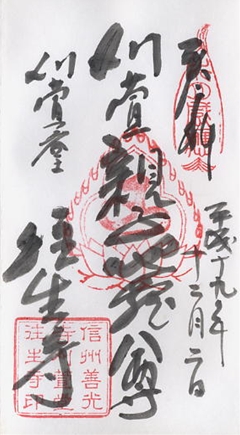 奉拝
平成十九年
十二月二日
刈萱親子地蔵尊
刈萱堂
往生寺
信州善光
寺刈萱堂
往生寺印